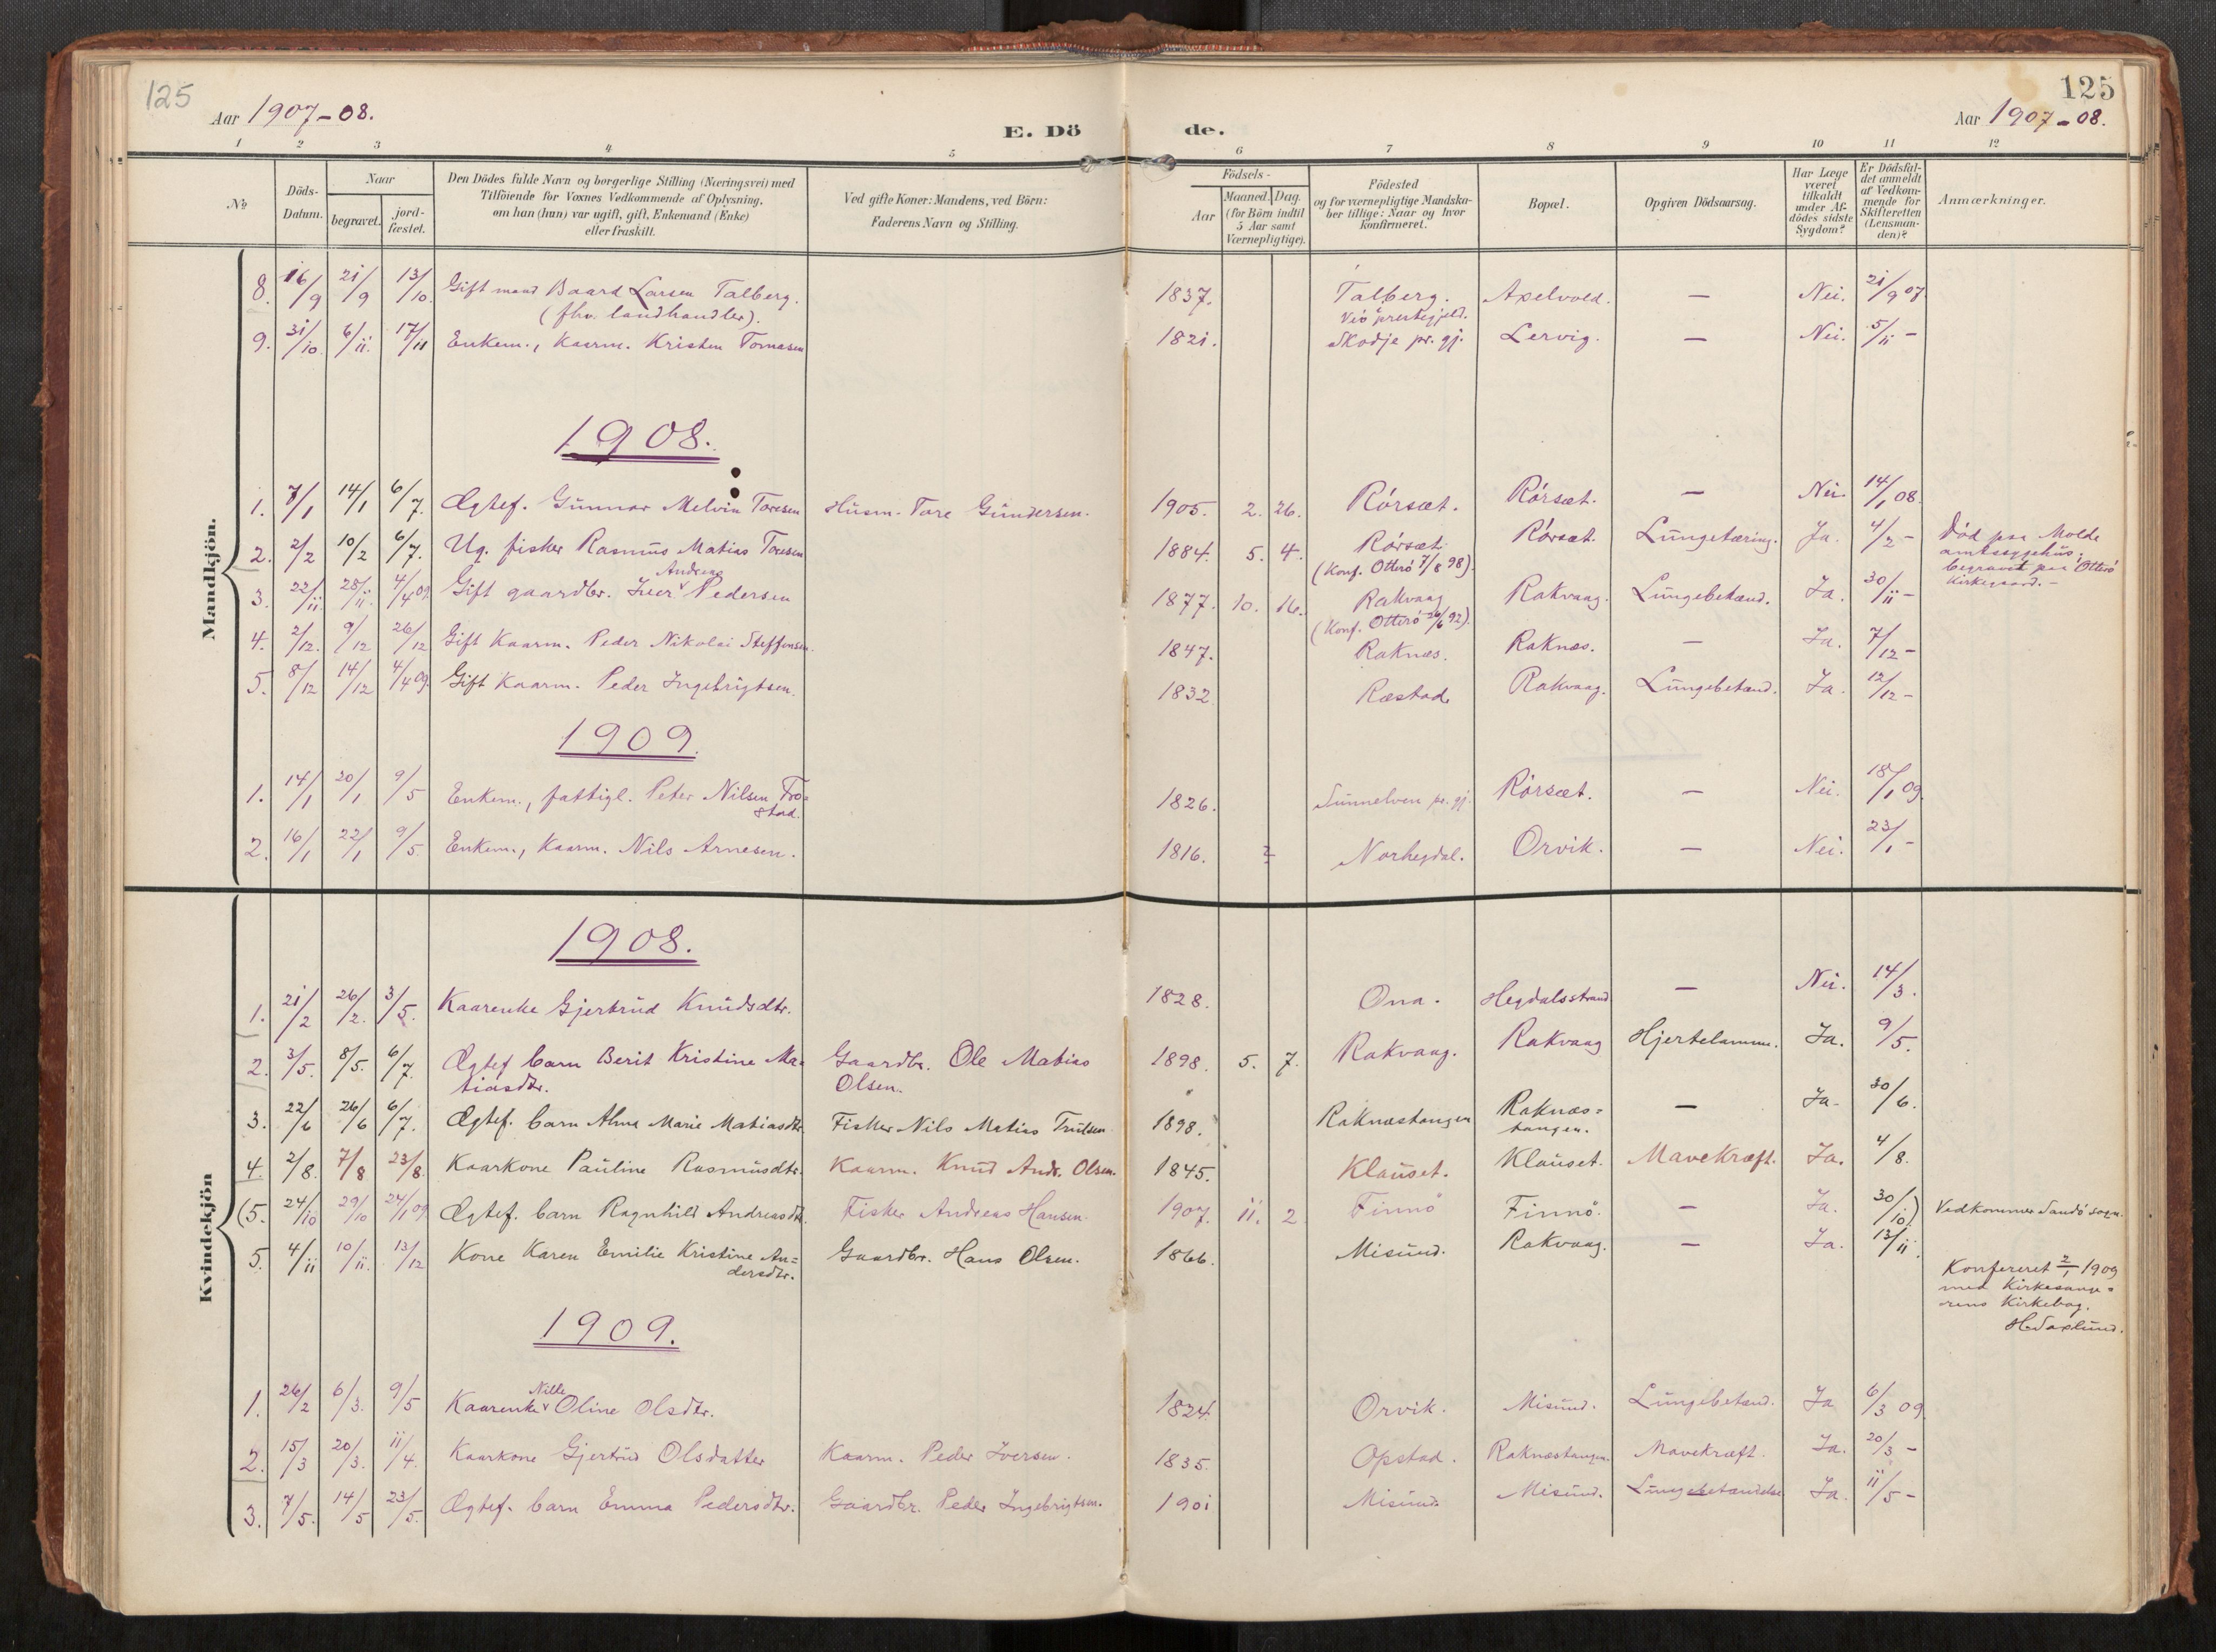 125
125
Aar 1907-08.
E. Dö de.
Aar 1907-08.
1 2 3 4 5 6 7 8 9 10 11 12
No
Döds-
Datum.
Naar
begravet.
jord-
fæstet.
Den Dödes fulde Navn og borgerlige Stilling (Næringsvei) med
Tilföiende for Voxnes Vedkommende af Oplysning,
om han (hun) var ugift, gift, Enkemand (Enke)
eller fraskilt.
Ved gifte Koner: Mandens, ved Börn:
Faderens Navn og Stilling.
Födsels-
Aar
Maaned. Dag.
(for Börn indtil
5 Aar samt
Værnepligtige).
Födested
og for værnepligtige Mandska-
ber tillige: Naar og hvor
konfirmeret.
Bopæl.
Opgiven Dödsaarsag.
Har Læge
været
tilkaldt
under Af-
dödes sidste
Sygdom?
Er Dödsfal-
det anmeldt
af Vedkom-
mende for
Skifteretten
(Lensman-
den)?
Anmærkninger.
Mandkjön.
8. 16/9 21/9 13/10. Gift mand Baard Larsen Talberg. 1837. Talberg. Axelvold. — Nei. 21/9 07.
(fhv. landhandler). Veö prestegjeld.
9. 31/10. 6/11. 17/11 Enkem., Kaarm. Kristen Tomasen 1821. Skodje pr. gj. Lervig. — Nei. 5/11 -
1908.
1. 7/1 14/1 6/7. Ægtef. Gunnar Melvin Toresen Husm. Tore Gundersen. 1905. 2. 26. Rörsæt. Rörsæt. — Nei. 14/1 08.
2. 2/2 10/2 6/7. Ug. fisker Rasmus Matias Toresen 1884. 5. 4. Rörsæt. Rörsæt. Lungetæring. Ja. 4/2 - Död paa Molde
(Konf. Otterö 7/8 98). amtssygehus;
begravet paa Otterö
Kirkegaard. -
Andreas
3. 22/11. 28/11. 4/4 09. Gift gaardbr. Iver v Pedersen 1877. 10. 16. Rakvaag Rakvaag. Lungebetænd. Ja. 30/11 -
(Konf. Otterö 26/6 92).
4. 2/12. 9/12 26/12 Gift Kaarm. Peder Nikolai Steffensen. 1847. Raknæs. Raknæs. — Ja. 7/12 -
5. 8/12 14/12 4/4 09. Gift Kaarm. Peder Ingebrigtsen. 1832 Ræstad. Rakvaag. Lungebetænd. Ja. 12/12 -
1909.
1. 14/1 20/1 9/5 Enkem., fattigl. Peter Nilsen Fro=
stad. 1826. Sunnelven pr. gj. Rörsæt. — Nei. 18/1 09.
2. 16/1 22/1 9/5. Enkem., Kaarm. Nils Arnesen. 1816. Norhegdal. Orvik. — Nei. 23/1 -
Kvindekjön
1908.
1. 21/2 26/2. 3/5. Kaarenke Gjertrud Knudsdtr. 1828. Ona. Hegdalsstrand — Nei. 14/3.
2. 3/5. 8/5. 6/7. Ægtef barn Berit Kristine Ma= Gaardbr. Ole Matias 1898. 5. 7. Rakvaag. Rakvaag Hjertelamme. Ja. 9/5.
tiasdtr. Olsen.
3. 22/6 26/6 6/7. Ægtef. barn Alma Marie Matiasdtr. Fisker Nils Matias Trulsen 1898. Raknæstangen Raknæs= — Ja. 30/6.
tangen.
4. 2/8. 7/8 23/8. Kaarkone Pauline Rasmusdtr. Kaarm. Knud Andr. Olsen. 1845. Klauset. Klauset. Mavekræft. Ja. 4/8.
(5. 24/10 29/10 24/1 09 Ægtef. barn Ragnhild Andreasdtr. Fisker Andreas Hansen. 1907. 11. 2. Finnö Finnö. — Ja. 30/10.) Vedkommer Sandö sogn.
5. 4/11 10/11. 13/12 Kone Karen Emilie Kristine An= Gaardbr. Hans Olsen. 1866. Misund. Rakvaag. — Ja. 13/11.
dersdtr.
Konfereret 2/1 1909
med Kirkesange=
rens Kirkebog.
H. Saxlund.
1909.
Nille
1. 26/2 6/3. 9/5 Kaarenke v Oline Olsdtr. 1824. Orvik. Misund. Lungebetænd. Ja 6/3 09.
2. 15/3 20/3. 11/4. Kaarkone Gjertrud Olsdatter Kaarm. Peder Iversen. 1835. Opstad. Raknæstangen. Mavekræft. Ja. 20/3 -
3. 7/5. 14/5 23/5. Ægtef. barn Emma Pedersdtr. Gaardbr. Peder Ingebrigtsen. 1901 Misund. Misund. Lungebetændelse Ja. 11/5 -